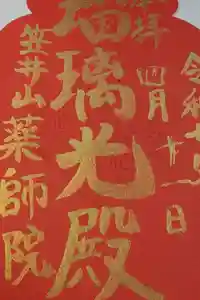 令和七年
奉拝
四月十一日
瑠璃光殿
笠井山薬師院